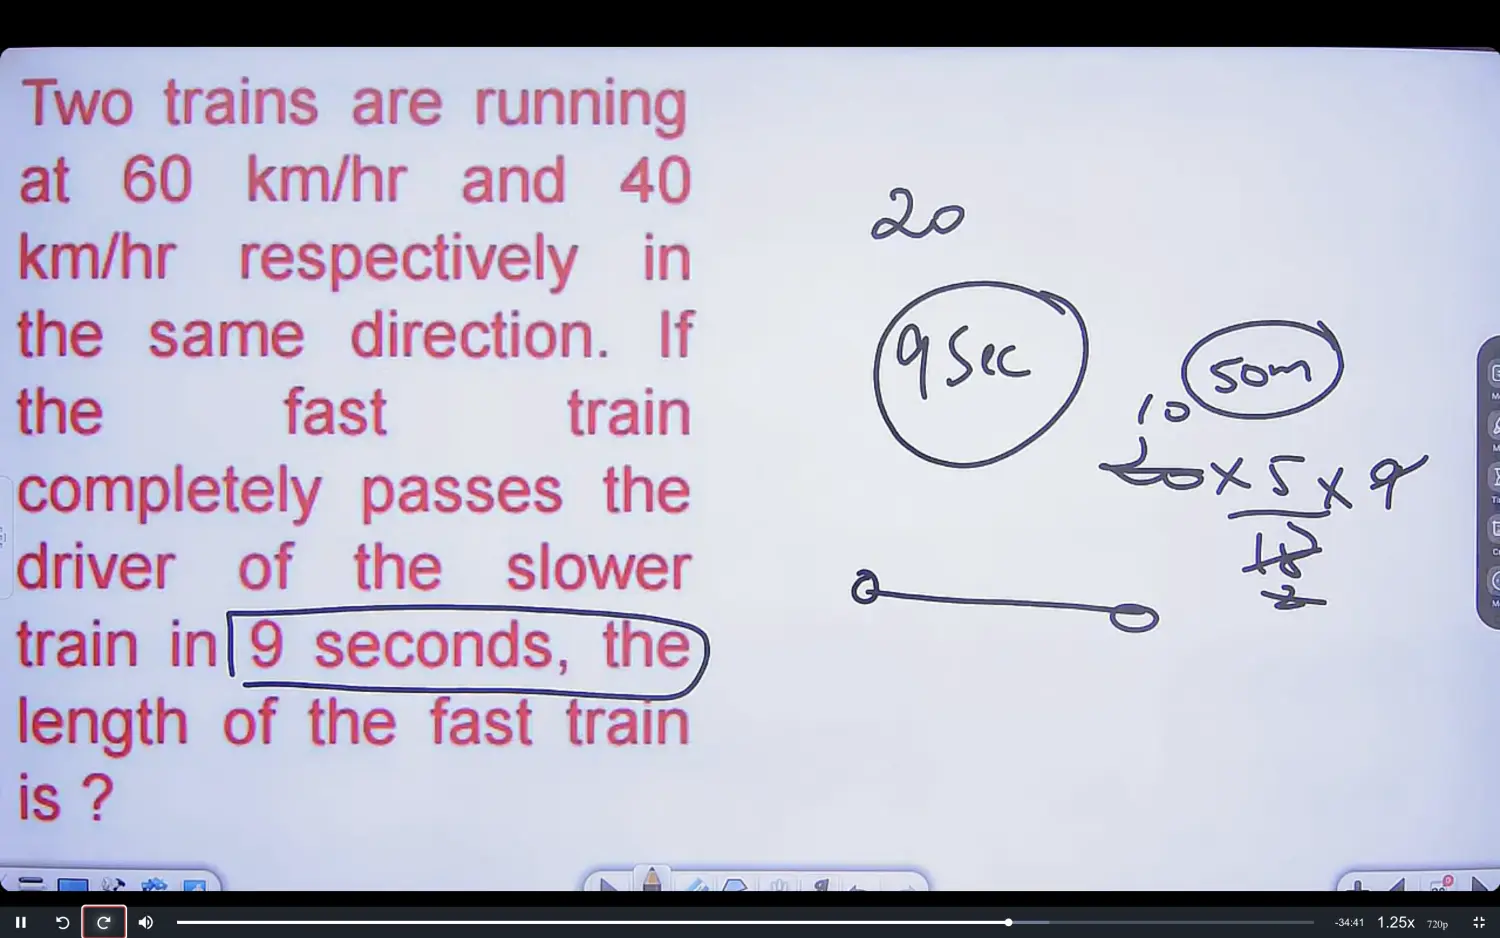 Two trains are running
at 60 km/hr and 40
km/hr respectively in
the same direction. If
the fast train
completely passes the
driver of the slower
train in 9 seconds, the
length of the fast train
is ?
20
9 Sec
50m
10
20 x 5 x 9
18
2
-34:41 1.25x 720p